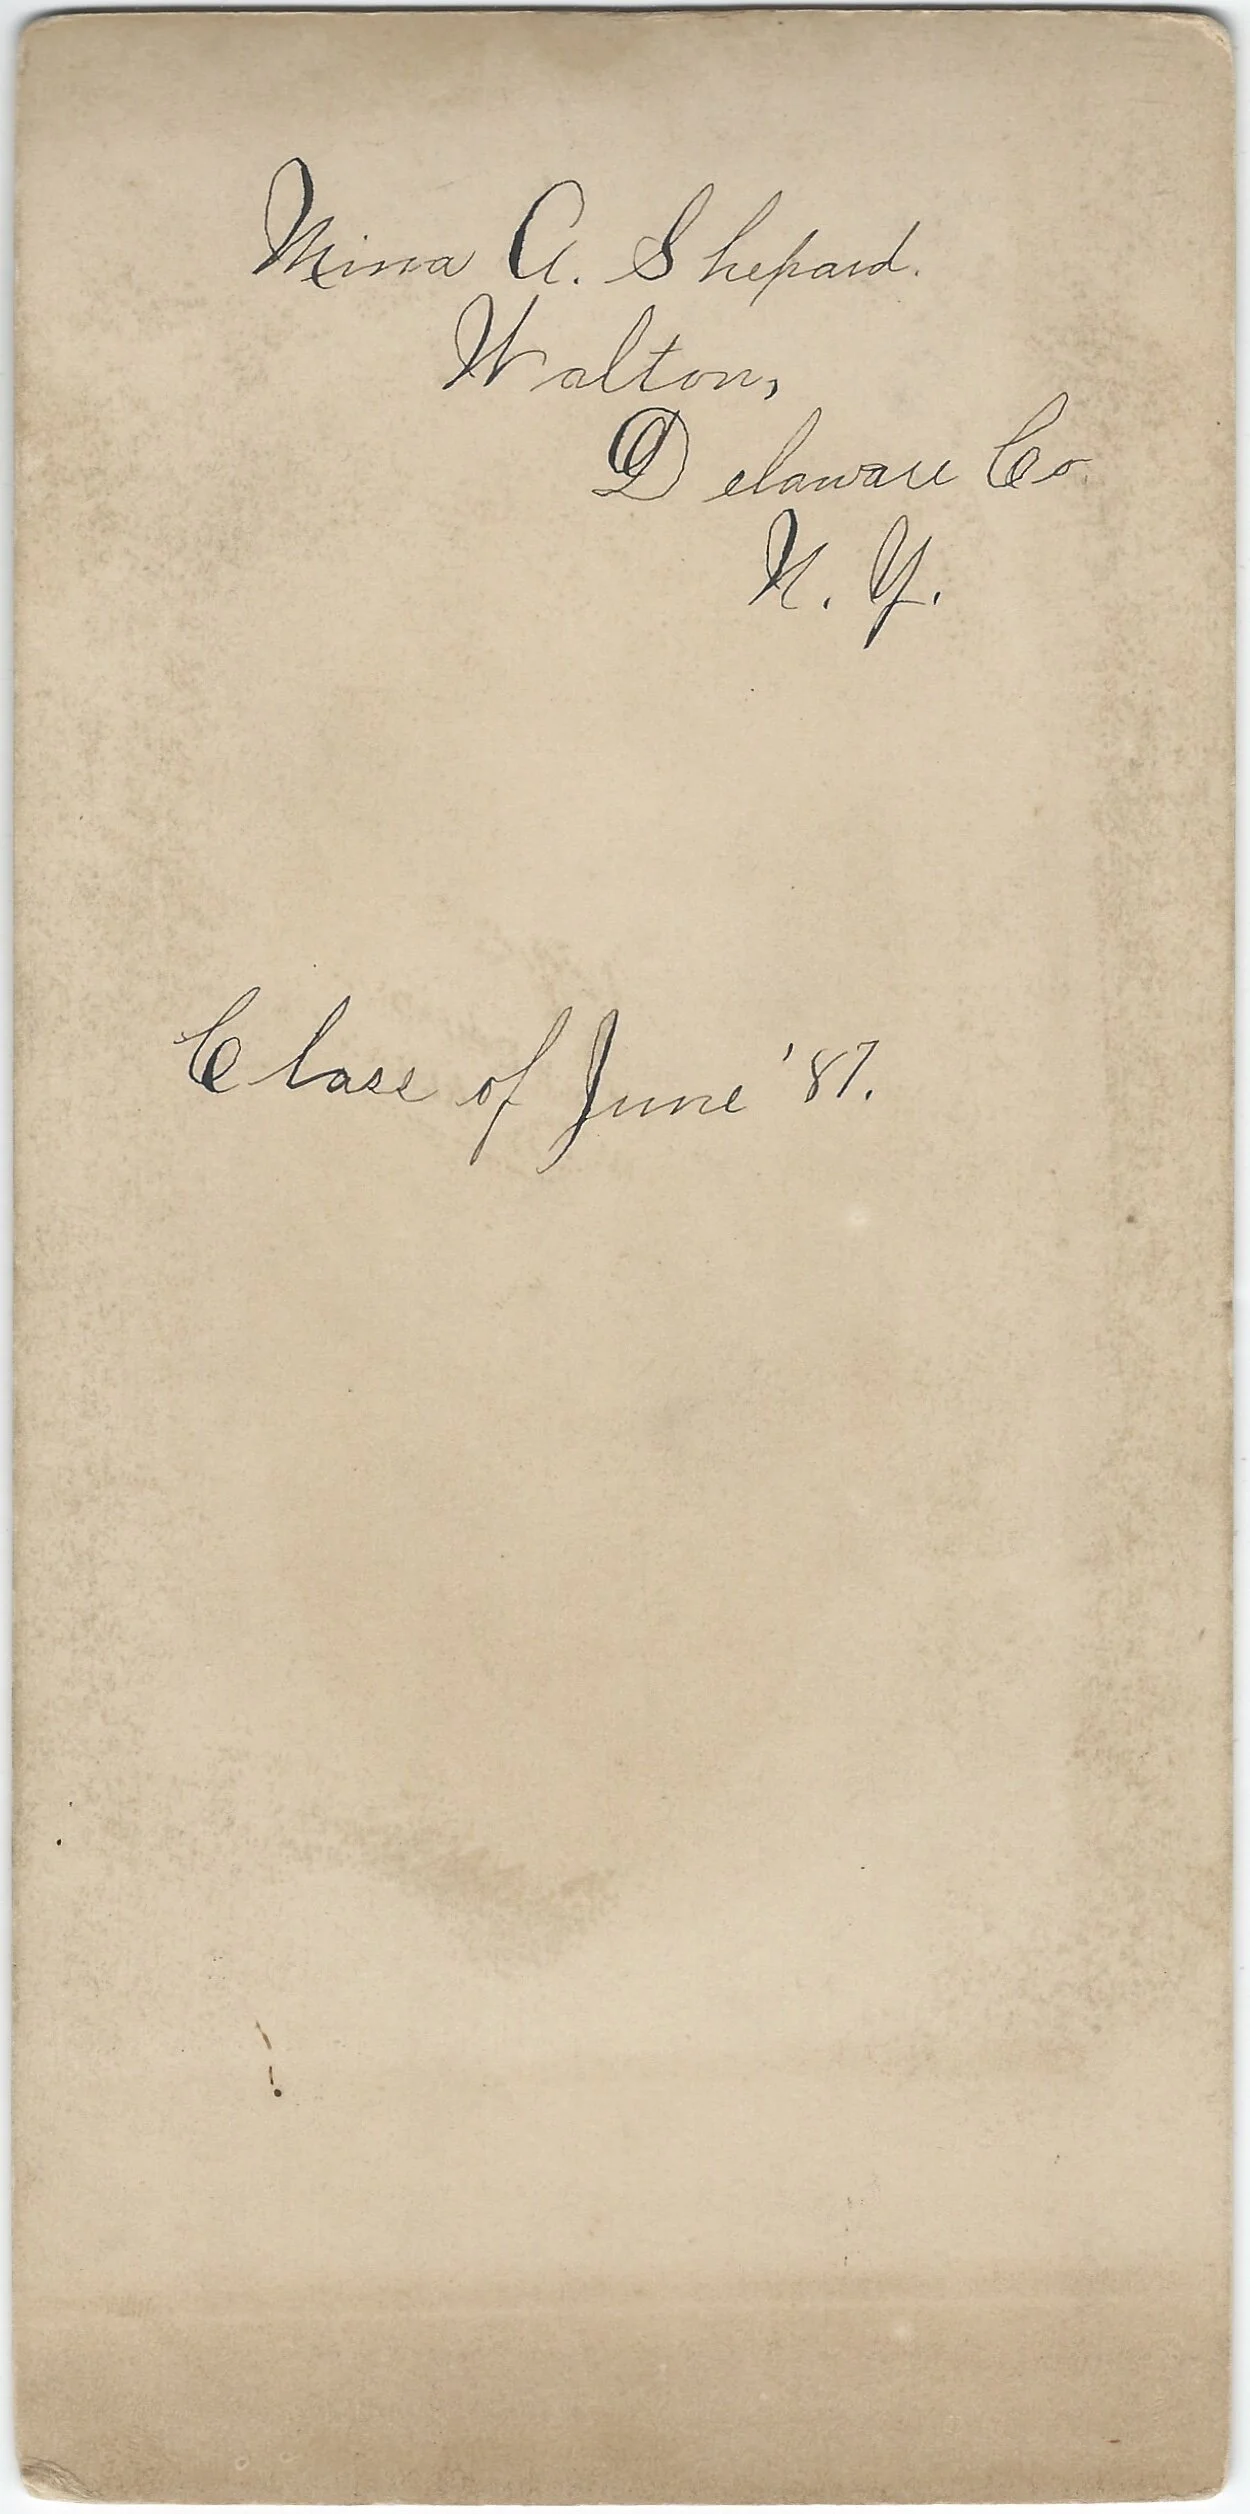 Mina A. Shepard.
Walton,
Delaware Co.
N. Y.
Class of June '87.